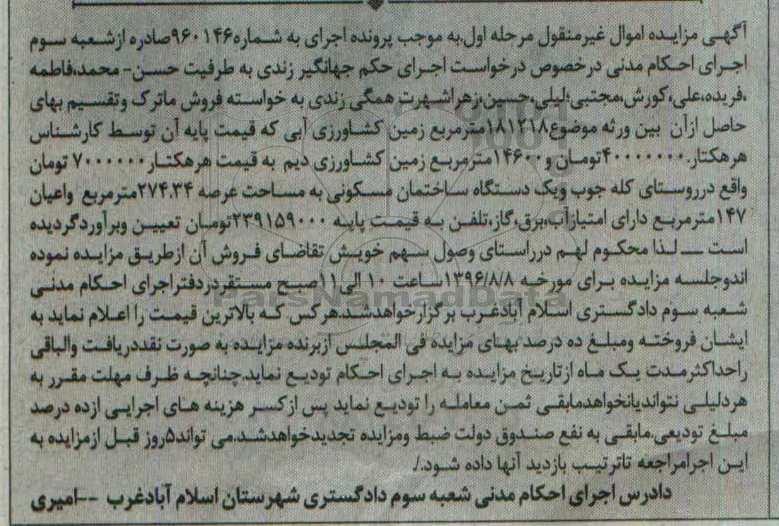 آگهی مزایده اموال غیرمنقول مرحله اول.به موجب پرونده اجرای به شماره۹۶۰۱۴۶صادره ازشعبه سوم
اجرای احکام مدنی درخصوص درخواست اجرای حکم جهانگیر زندی به طرفیت حسن-محمد،فاطمه
،فریده،علی،کورش،مجتبی؛لیلی،حسین،زهراشهرت همگی زندی به خواسته فروش ماترک وتقسیم بهای
حاصل ازآن بین ورثه موضوع۱۸۱۲۱۸مترمربع زمین کشاورزی آبی که قیمت پایه آن توسط کارشناس
هرهکتار۴۰۰۰۰۰۰۰تومان و۱۴۶۰۰مترمربع زمین کشاورزی دیم به قیمت هرهکتار۷۰۰۰۰۰۰ تومان
واقع درروستای کله جوب ویک دستگاه ساختمان مسکونی به مساحت عرصه ۲۷۴.۳۴مترمربع واعیان
۱۴۷مترمربع دارای امتیازآب،برق،گاز،تلفن به قیمت پایه ۲۳۹۱۵۹۰۰۰تومان تعیین وبرآوردگردیده
است ــ لذا محکوم لهم درراستای وصول سهم خویش تقاضای فروش آن ازطریق مزایده نموده
اندوجلسه مزایده برای مورخه ۱۳۹۶/۸/۸ساعت ۱۰ الی۱۱صبح مستقردردفتراجرای احکام مدنی
شعبه سوم دادگستری اسلام آبادغرب برگزارخواهدشد.هرکس که بالاترین قیمت را اعلام نماید به
ایشان فروخته ومبلغ ده درصد بهای مزایده فی المجلس ازبرنده مزایده به صورت نقددریافت والباقی
راحداکثرمدت یک ماه ازتاریخ مزایده به اجرای احکام تودیع نماید.چنانچه ظرف مهلت مقرر به
هردلیلی نتواندیانخواهدمابقی ثمن معامله را تودیع نماید پس ازکسر هزینه های اجرایی ازده درصد
مبلغ تودیعی.مابقی به نفع صندوق دولت ضبط ومزایده تجدیدخواهدشد.می تواند۵روز قبل ازمزایده به
این اجرامراجعه تاترتیب بازدید آنها داده شود./.
دادرس اجرای احکام مدنی شعبه سوم دادگستری شهرستان اسلام آبادغرب --امیری
ParsNamadData